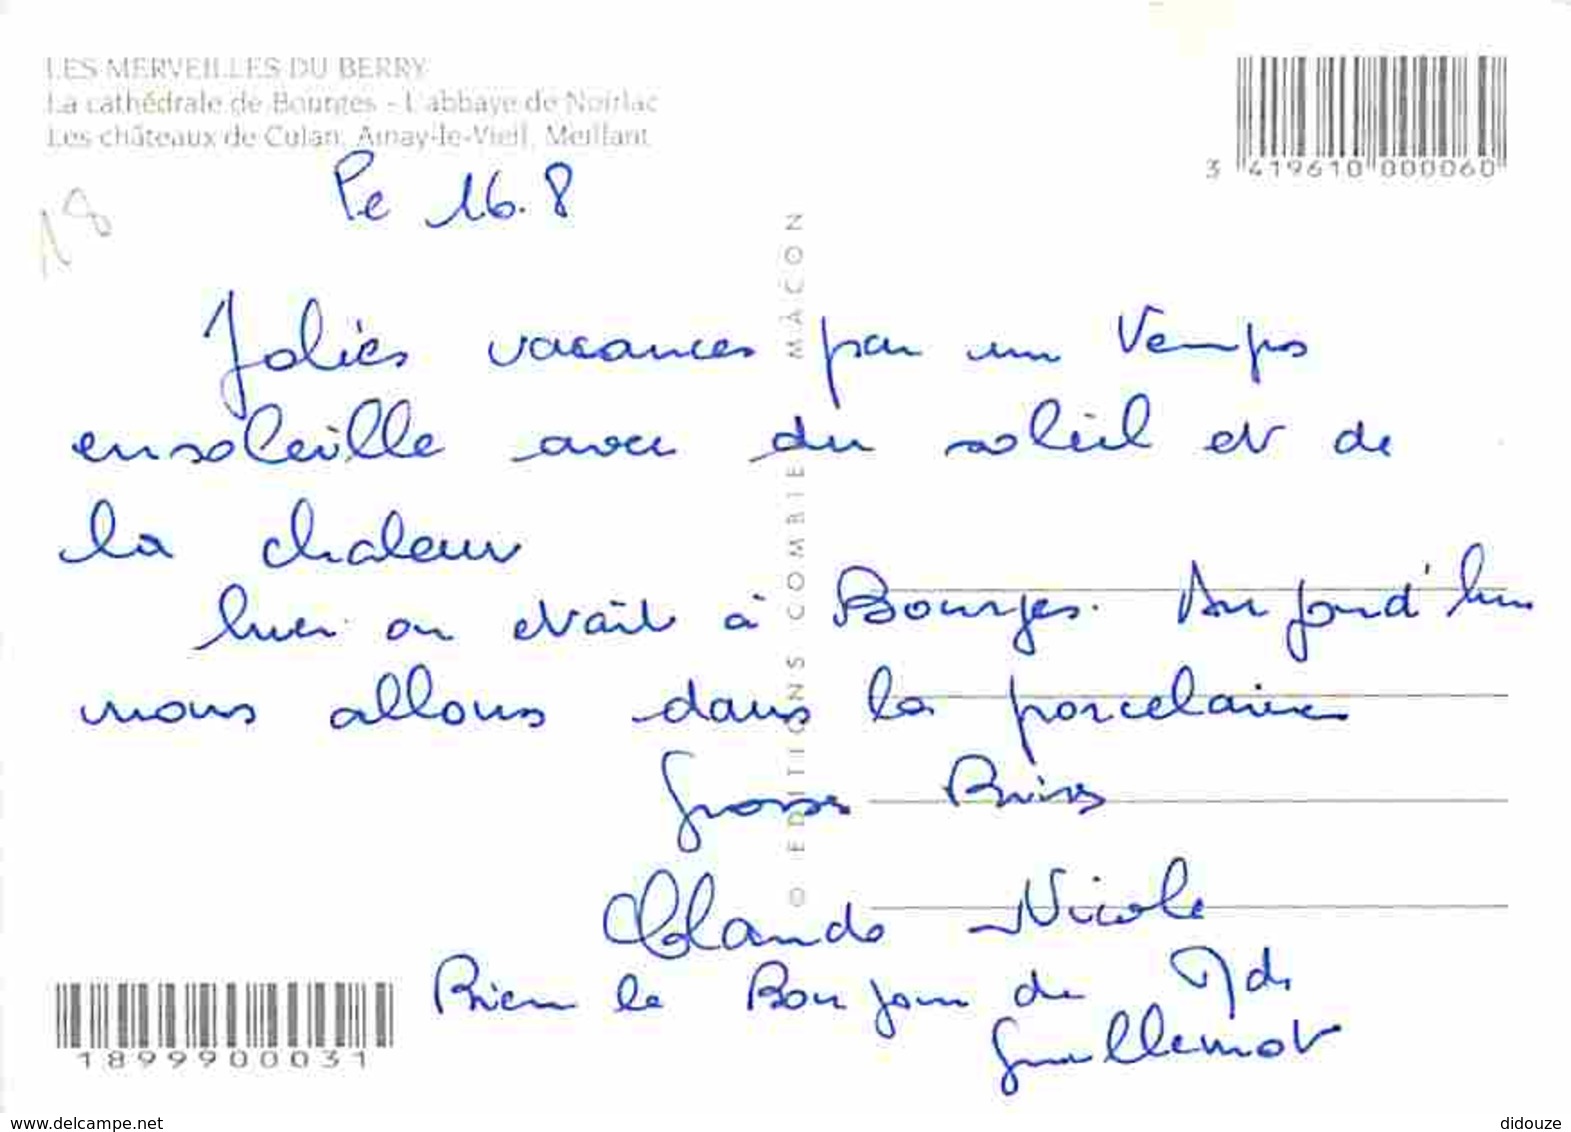 LES MERVEILLES DU BERRY
La cathédrale de Bourges - L'abbaye de Noirlac
Les châteaux de Culan, Ainay-le-Vieil, Meillant
3 419610 000060
18
Le 16.8
Jolies vacances par un temps
ensoleille avec du soleil et de
la chaleur
hier on etait à Bourges. Aujourd'hui
nous allons dans la porcelaine
Grosses Bises
Claude Nicole
Bien le Bonjour de Mde
Guillemot
© EDITIONS COMBIER MÂCON
1899900031
www.delcampe.net
didouze